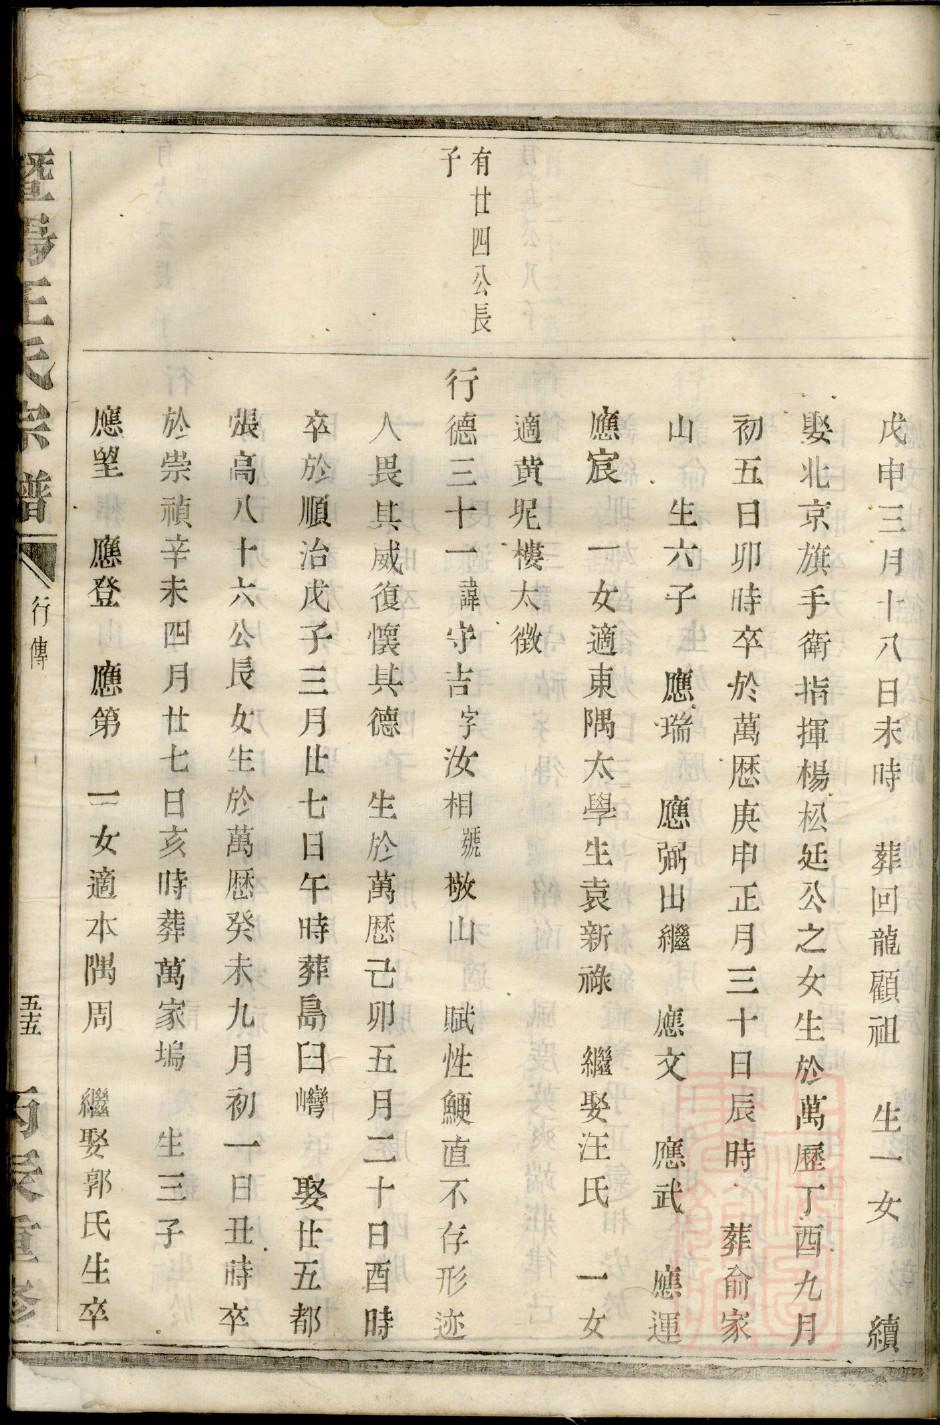 戊申三月十八日未時 葬回龍顧祖 生一女 續
娶北京旗手衛指揮楊松延公之女生於萬歷丁酉九月
初五日卯時卒於萬厯庚申正月三十日辰時 葬俞家
山 生六子 應瑞 應弼出繼 應文 應武 應運
應宸 一女適東隅太學生袁新祿 繼娶汪氏 一女
適黄坭樓太徵
有廿四公長
子
行德三十一諱守吉字汝相號敬山 賦性鯁直不存形迹
人畏其威復懷其德 生於萬厯己卯五月二十日酉時
卒於順治戊子三月廿七日午時葬島臼灣 娶廿五都
張高八十六公長女生於萬厯癸未九月初一日丑時卒
於崇禎辛未四月廿七日亥時葬萬家塢 生三子
應堂 應登 應第 一女適本隅周 繼娶郭氏生卒
暨陽王氏宗譜
行傳
五五
丙辰重修